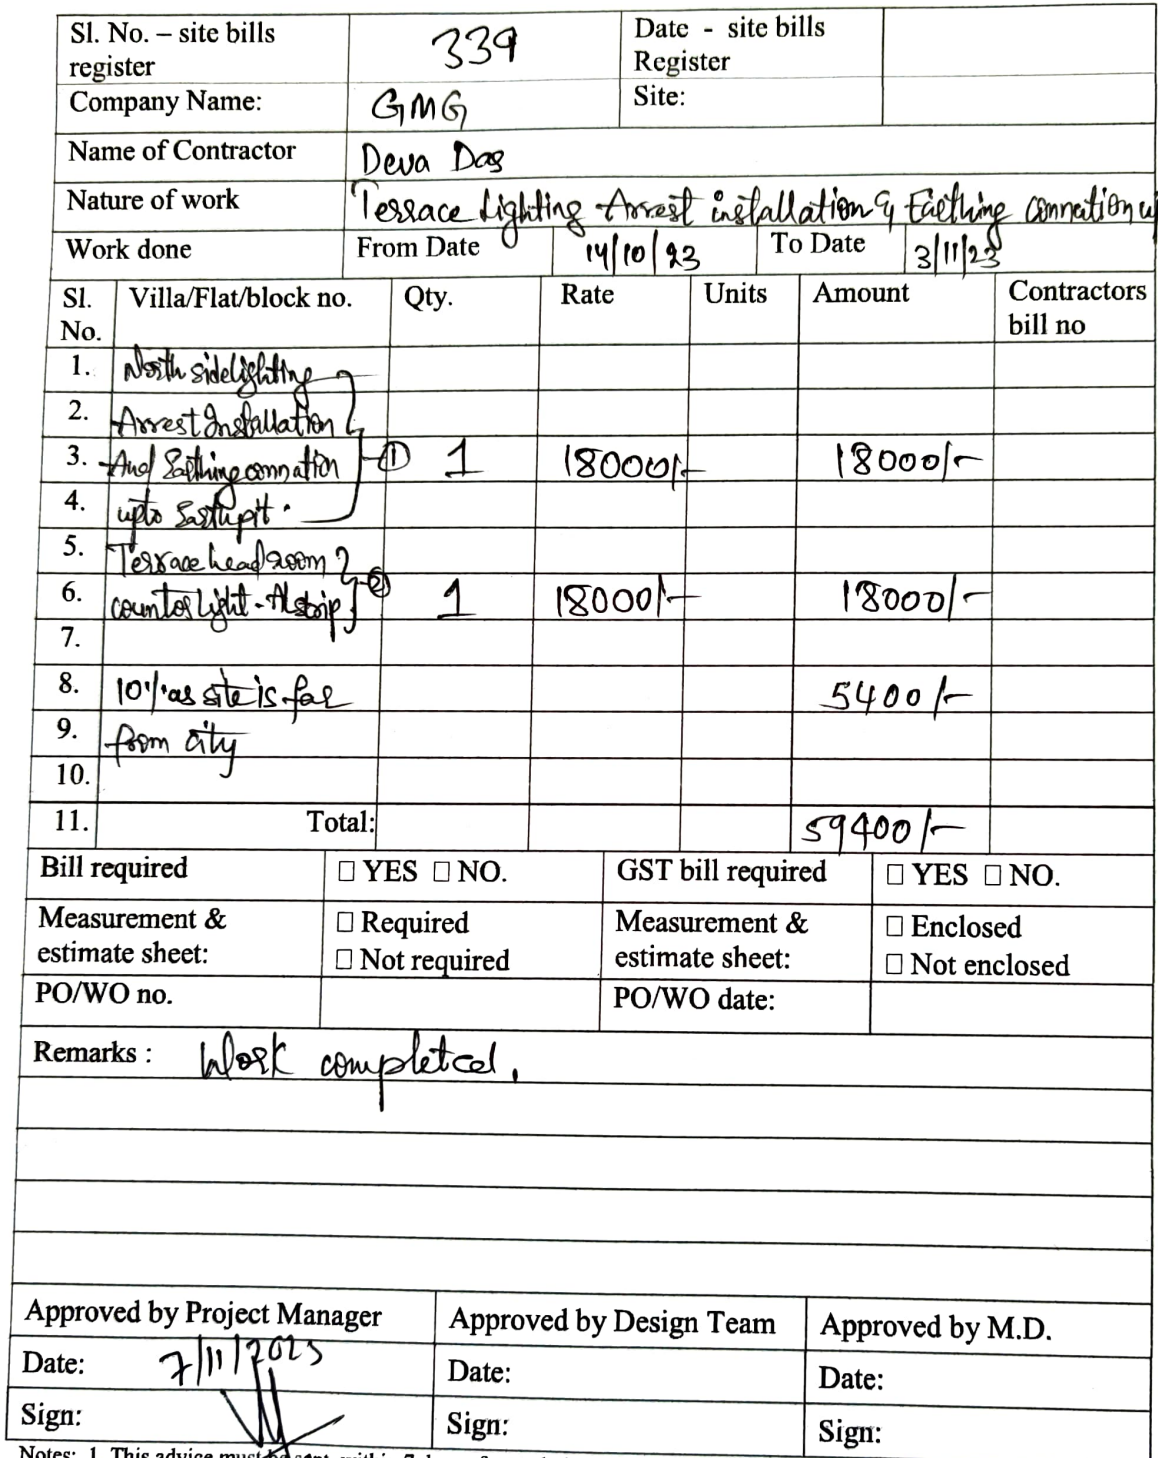 Sl. No. – site bills register 339 Date - site bills Register
Company Name: GMG Site:
Name of Contractor Deva Das
Nature of work Terrace Lighting Arrest installation & Earthing connation up
Work done From Date 14/10/23 To Date 3/11/23
Sl. No. Villa/Flat/block no. Qty. Rate Units Amount Contractors bill no
1. North side lighting
2. Arrest Installation
3. And Earthing connation ① 1 18000/- 18000/-
4. upto Earth pit.
5. Terrace head room
6. counter light - Al strip ② 1 18000/- 18000/-
7.
8. 10% as site is far 5400/-
9. from city
10.
11. Total: 59400/-
Bill required □ YES □ NO. GST bill required □ YES □ NO.
Measurement & estimate sheet: □ Required □ Not required Measurement & estimate sheet: □ Enclosed □ Not enclosed
PO/WO no. PO/WO date:
Remarks : Work completed.
Approved by Project Manager Approved by Design Team Approved by M.D.
Date: 7/11/2023 Date: Date:
Sign: Sign: Sign:
Notes: 1. This advice must be sent within 7 days